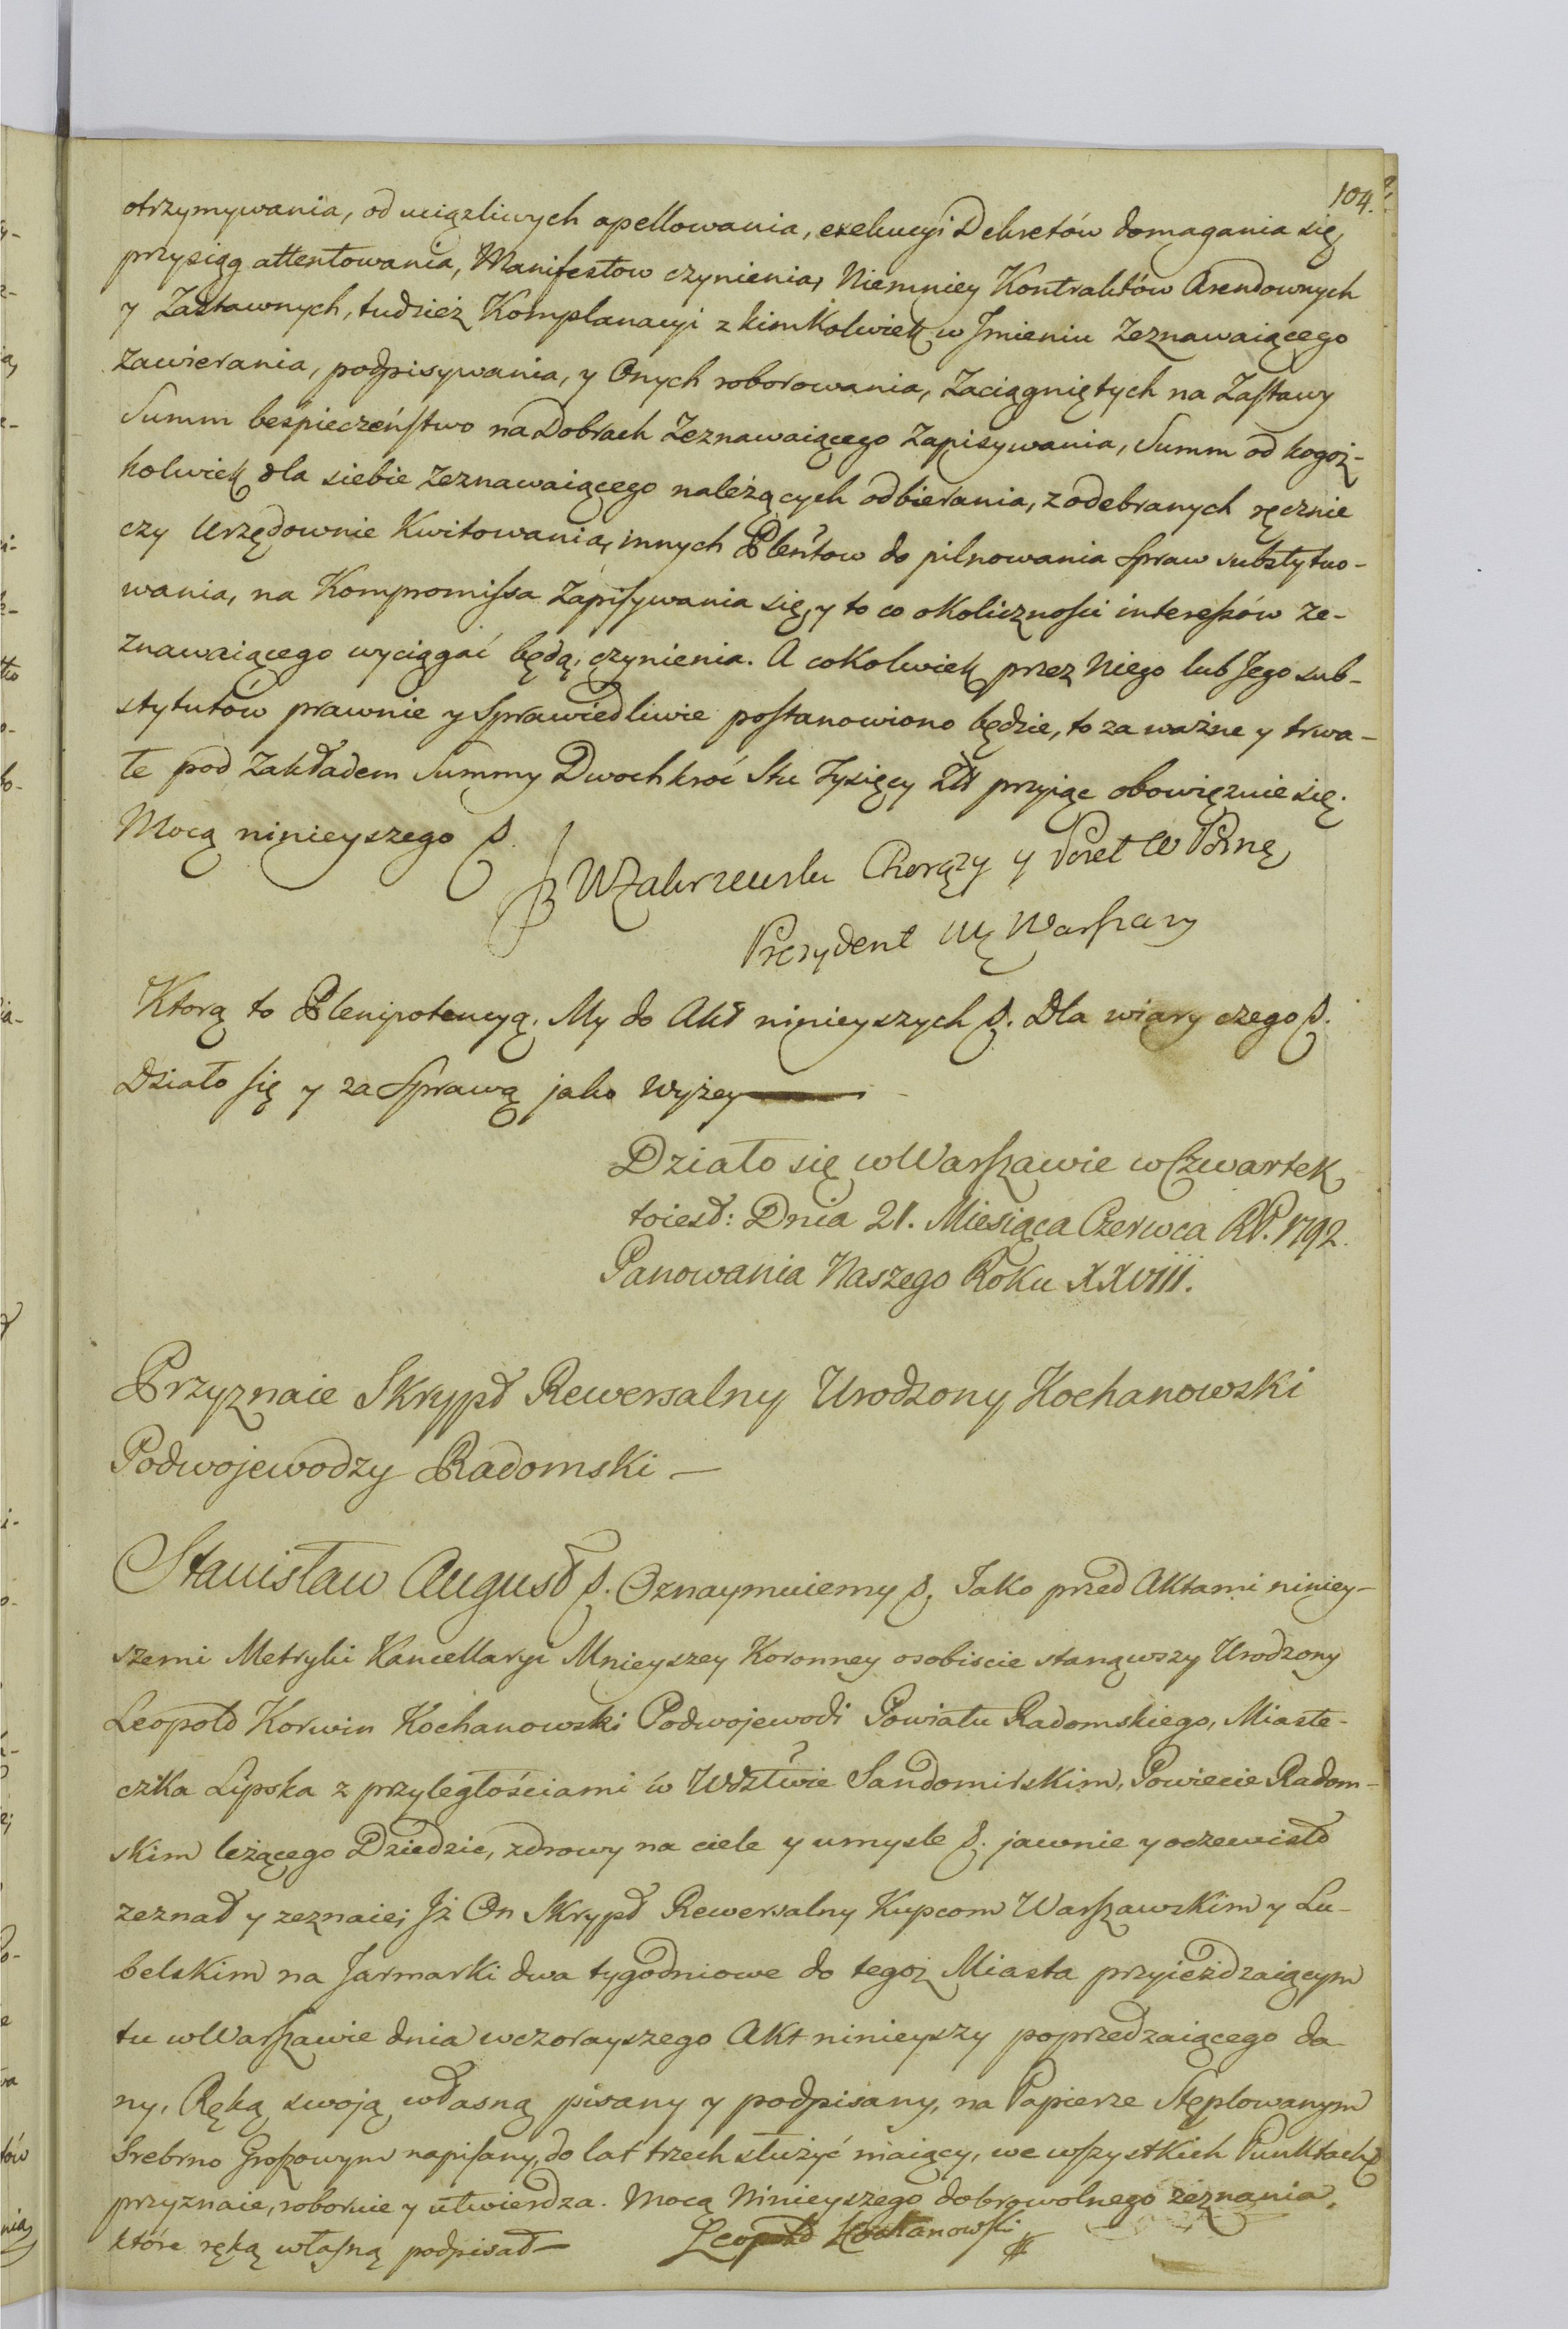 104.
otrzymywania, od uciążliwych apellowania, exekucyi Dekretów domagania się,
przysiąg attentowania, Manifestow czynienia, Niemniey Kontraktów Arendownych
y Zastawnych, tudzież Komplanacyi z kimkolwiek w Jmieniu Zeznawaiącego
zawierania, podpisywania, y Onych roborowania, Zaciągniętych na Zastawy
Summ bespieczeństwo na Dobrach Zeznawaiącego Zapisywania, Summ od kogoż-
kolwiek dla siebie Zeznawaiącego należących odbierania, z odebranych ręcznie
czy Urzędownie Kwitowania, innych Pleńtow do pilnowania Spraw substytuo-
wania, na Kompromissa Zapisywania się, y to co okoliczności interessów Ze-
znawaiącego wyciągać będą, czynienia. A cokolwiek przez Niego lub Jego sub-
stytutów prawnie y Sprawiedliwie postanowiono będzie, to za ważne y trwa-
łe pod Zakładem Summy Dwochkroć Stu Tysięcy Złł przyiąc obowięzuie się.
Mocą ninieyszego p.
Chorąży y Poseł
Prezydent Warszawy
Ktorą to Plenipotencyą. My do Akt ninieyszych p. Dla wiary czego p.
Działo się y za Sprawą jako wyżey
Działo się w Warszawie w Czwartek
toiest: Dnia 21. Miesiąca Czerwca RP. 1792.
Panowania Naszego Roku XXVIII.
Przyznaie Skrypt Rewersalny Urodzony Kochanowski
Podwojewodzy Radomski —
Stanisław August p. Oznaymuiemy p. Jako przed Aktami niniey-
szemi Metryki Kancellaryi Mnieyszey Koronney osobiscie stanąwszy Urodzony
Leopold Korwin Kochanowski Podwojewodi Powiatu Radomskiego, Miaste-
czka Lipska z przyległościami w Wdztwie Sandomirskim, Powiecie Radom-
skim leżącego Dziedzic, zdrowy na ciele y umysle p. jawnie y oczewisto
zeznał y zeznaie; Jż On Skrypt Rewersalny Kupcom Warszawskim y Lu-
belskim na Jarmarki dwa tygodniowe do tegoż Miasta przyieżdzaiącym
tu w Warszawie dnia wczorayszego Akt ninieyszy poprzedzaiącego da-
ny, Ręką swoją własną pisany y podpisany, na Papierze Stęplowanym
Srebrno Groszowym napisany, do lat trzech służyć maiący, we wszystkich Punktach
przyznaie, roboruie y utwierdza. Mocą Ninieyszego dobrowolnego zeznania,
które ręką własną podpisał — Leopold Kochanowski